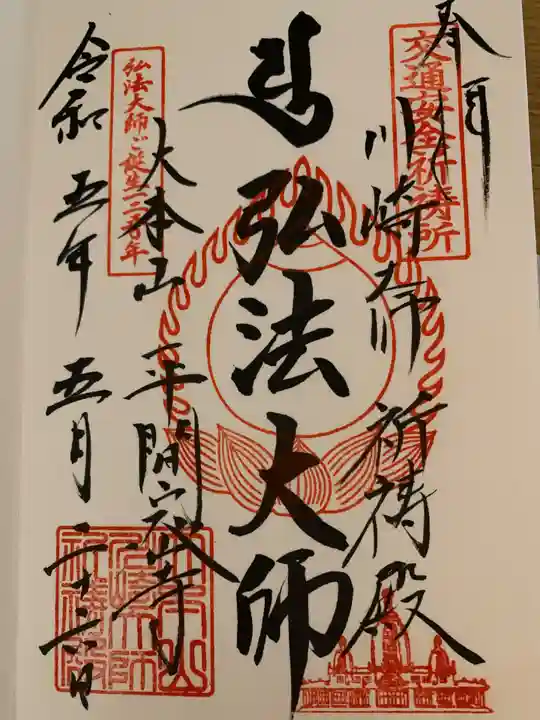 奉拝
交通安全祈祷所
川崎大師 祈祷殿
弘法大師
大本山 平間寺
弘法大師ご誕生一二五〇年
令和五年五月二十六日